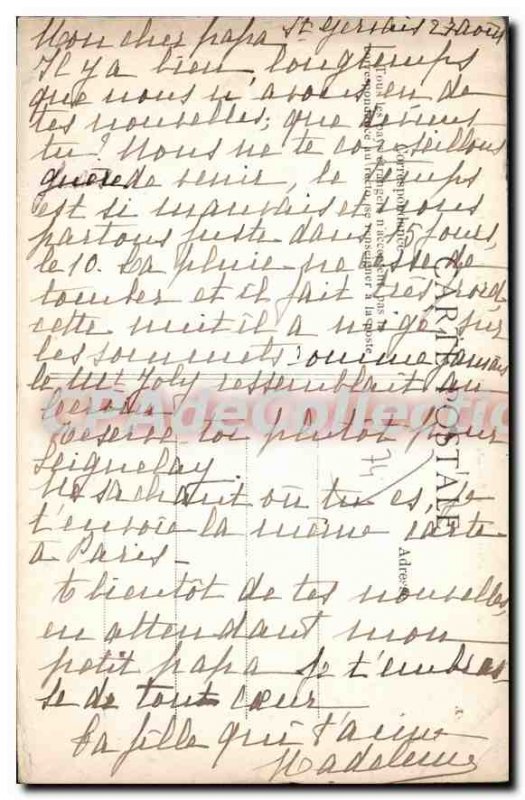 Mon cher papa St Gervais 27 août
Il y a bien longtemps
que nous n'avons eu de
tes nouvelles; que deviens
tu? Nous ne te conseillons
guère de venir, le temps
est si mauvais et nous
partons juste dans 15 jours,
le 10. La pluie ne cesse de
tomber et il fait très froid,
cette nuit il a neigé sur
les sommets comme jamais
le Mt Joly ressemblait au
Réserve toi plutôt pour
Seignelay.
Ne sachant où tu es, je
t'envoie la même carte
à Paris.
A bientôt de tes nouvelles,
en attendant mon
petit papa je t'embras
se de tout cœur
Ta fille qui t'aime
Madeleine
CARTE POSTALE
Correspondance
Tous les pays étrangers n'acceptent pas la
correspondance au recto (se renseigner à la poste
Adresse
74
CPAdeCollection